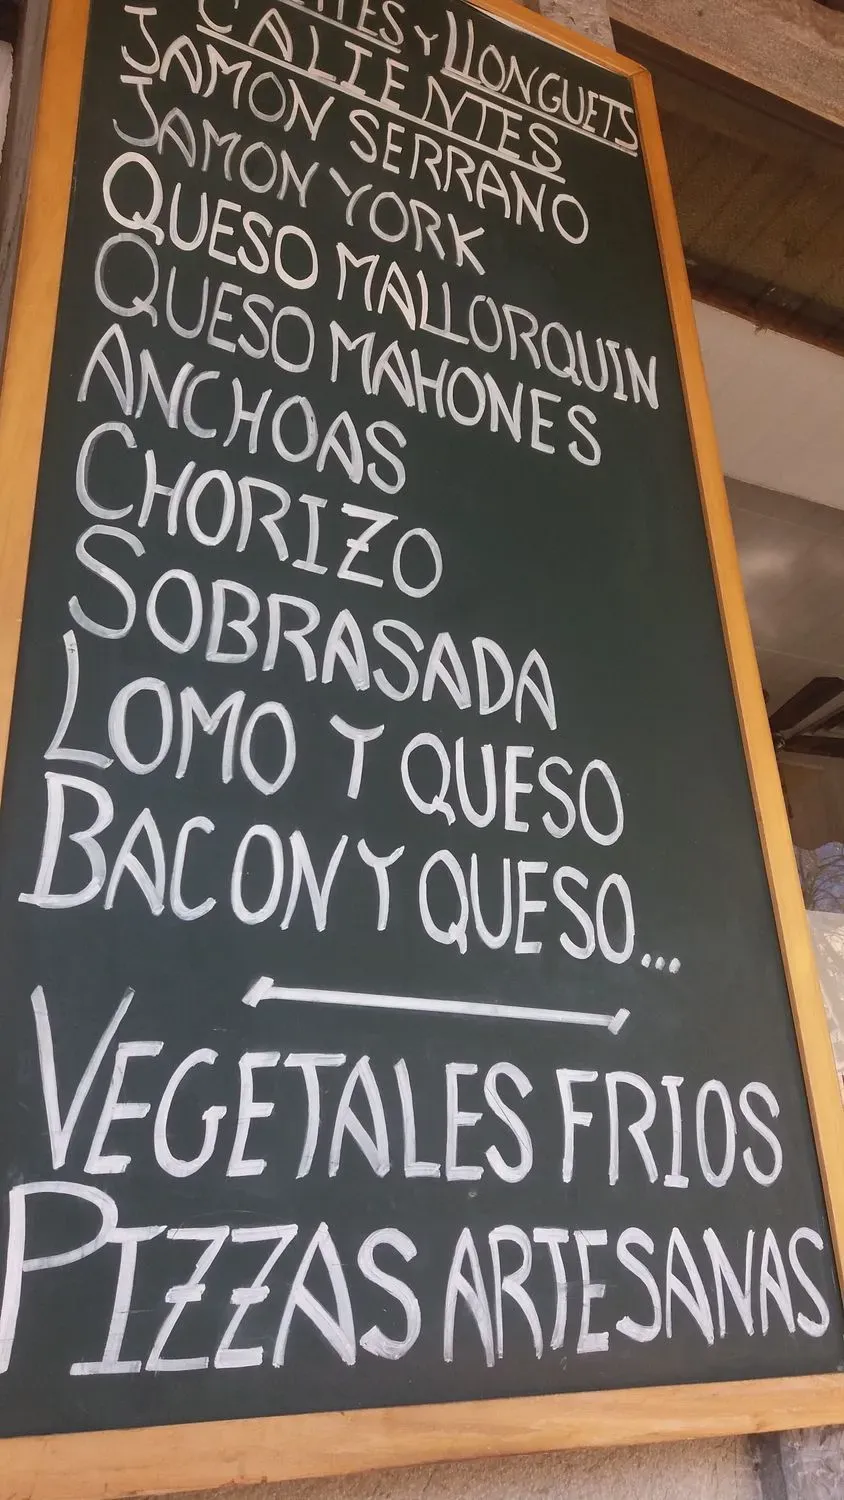 Y LLONGUETS
CALIENTES
JAMON SERRANO
JAMON YORK
QUESO MALLORQUIN
QUESO MAHONES
ANCHOAS
CHORIZO
SOBRASADA
LOMO Y QUESO
BACON Y QUESO...
VEGETALES FRIOS
PIZZAS ARTESANAS